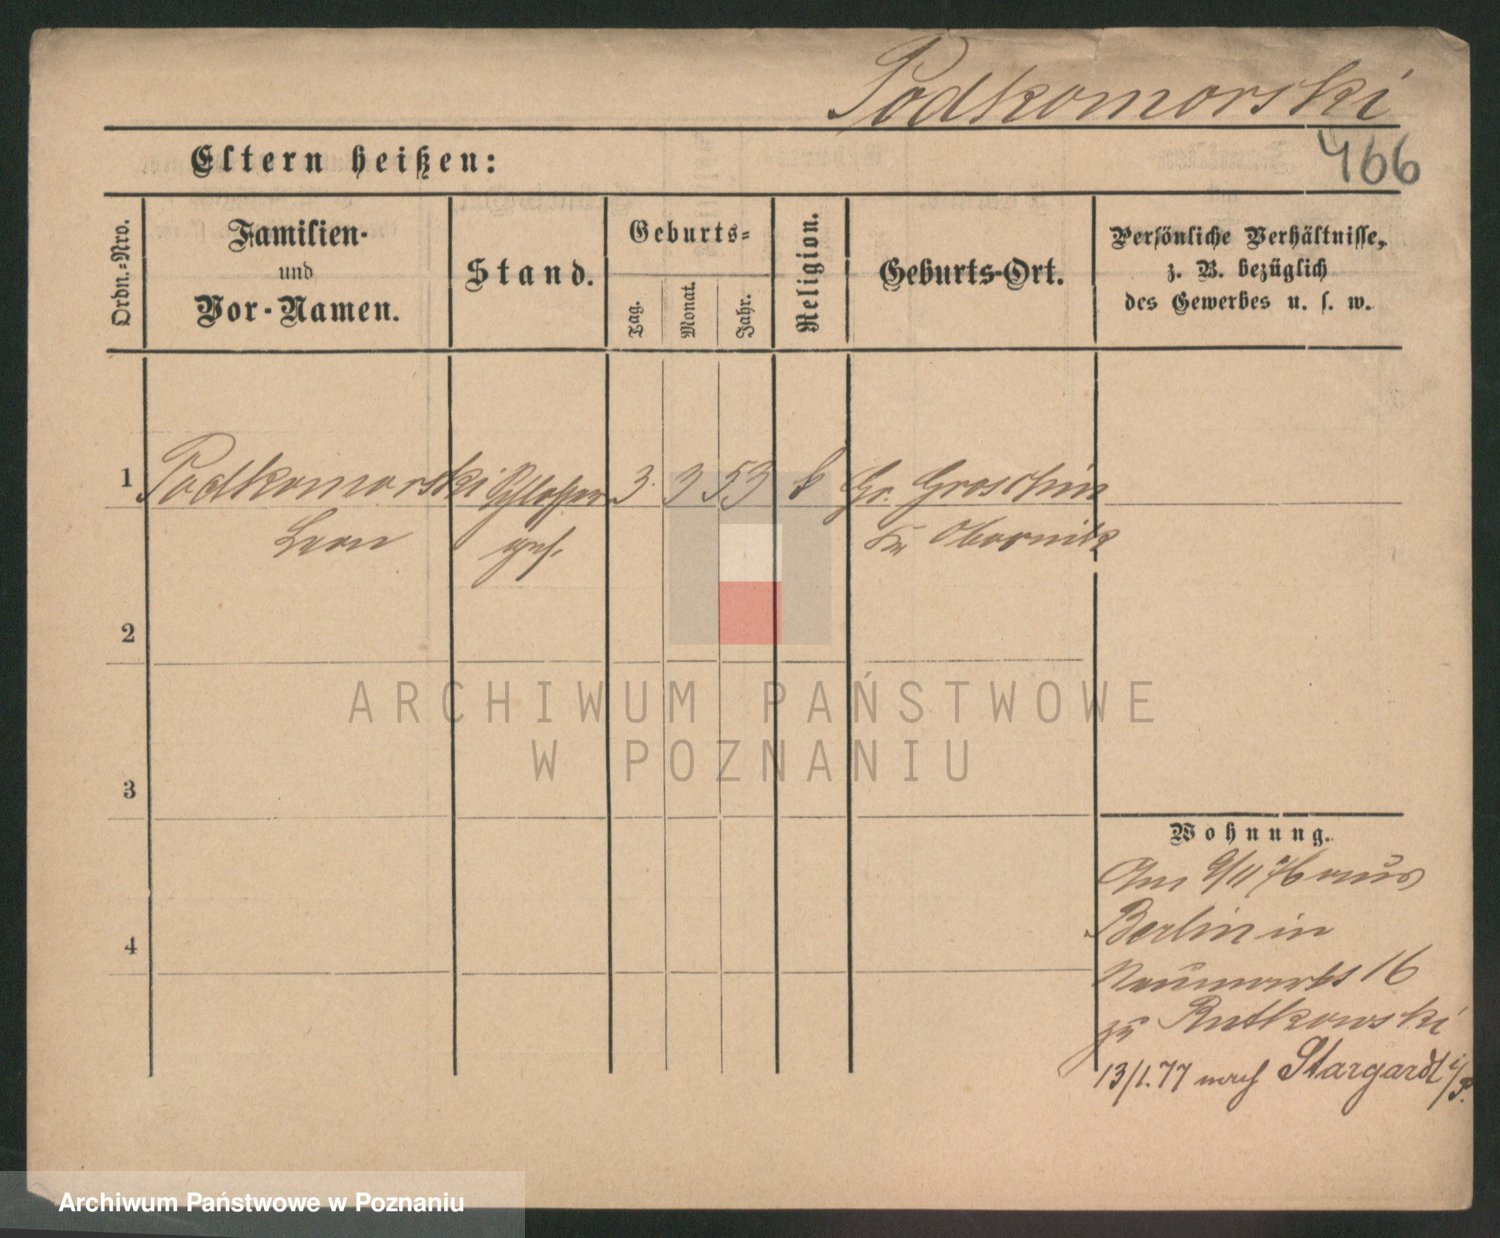 Podkomorski
466
Eltern heißen:
Ordn.=Nro.
Familien-
und
Vor-Namen.
Stand.
Geburts=
Tag.
Monat.
Jahr.
Religion.
Geburts-Ort.
Persönliche Verhältnisse,
z. B. bezüglich
des Gewerbes u. s. w.
1 Podkomorski Schlosser 3. 3 53 k Gr. Groschin
Leon ges. Kr. Obornik
2
3
4
Wohnung.
Am 9/11 76 aus
Berlin in
Neumarkt 16
zu Rutkowski
13/1. 77 nach Stargardt i/P.
ARCHIWUM PAŃSTWOWE
W POZNANIU
Archiwum Państwowe w Poznaniu